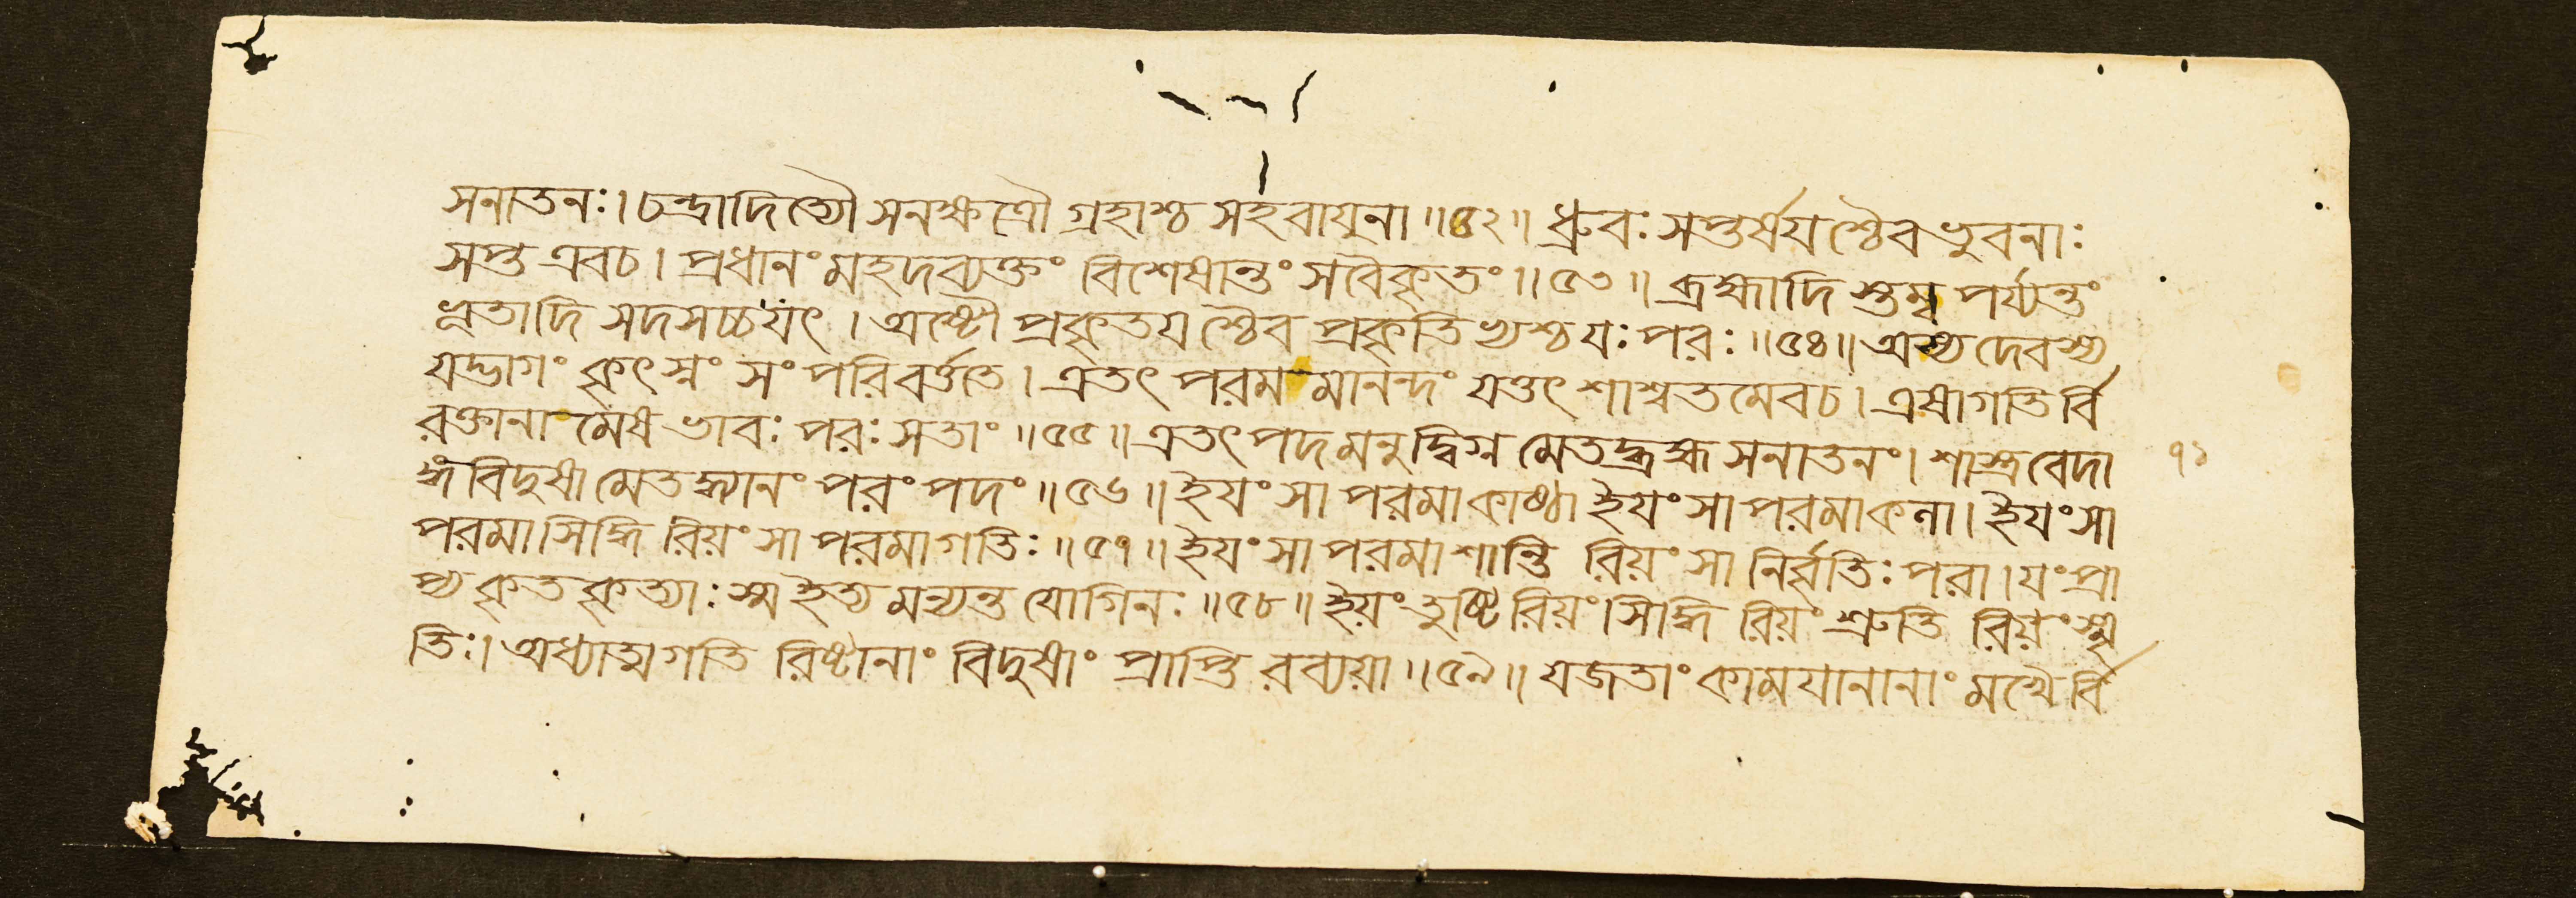 সনাতনঃ। চন্দ্রাদিত্যৌ সনক্ষত্রৌ গ্রহাশ্চ সহবায়ুনা ॥৫২॥ ধ্রুবঃ সপ্তর্ষয়শ্চৈব ভুবনাঃ
সপ্ত এবচ। প্রধানং মহদব্যক্তং বিশেষান্তং সবৈকৃতং ॥৫৩॥ ব্রহ্মাদি স্তম্ব পর্য্যন্তং
ভূতাদি সদসচ্চযৎ। অষ্টৌ প্রকৃতয়শ্চৈব প্রকৃতিভ্যশ্চ যঃ পরঃ ॥৫৪॥ অস্য দেবস্য
যদ্ভাগং কৃৎস্নং সংপরিবর্ত্ততে। এতৎ পরমমানন্দং যত্তৎ শাশ্বতমেবচ। এষাগতির্বি
রক্তানামেষ ভাবঃ পরঃ সতাং ॥৫৫॥ এতৎ পদমনুদ্বিগ্নমেতদ্ব্রহ্ম সনাতনং। শাস্ত্রবেদা
ঙ্গবিদুষামেতদ্ধ্যানং পরং পদং ॥৫৬॥ ইয়ং সা পরমাকাষ্ঠা ইয়ং সা পরমাকলা। ইয়ং সা
পরমাসিদ্ধি রিয়ং সা পরমাগতিঃ ॥৫৭॥ ইয়ং সা পরমাশান্তি রিয়ং সা নির্বৃতিঃ পরা। যং প্রা
প্য কৃতকৃত্যাঃ স্ম ইত্যমন্যন্ত যোগিনঃ ॥৫৮॥ ইয়ং তুষ্টিরিয়ং সিদ্ধি রিয়ং শ্রুতি রিয়ং স্মৃ
তিঃ। অধ্যাত্মগতি রিষ্টানাং বিদুষাং প্রাপ্তি রব্যয়া ॥৫৯॥ যজতাং কাময়ানানাং মখৈর্বি
৭১